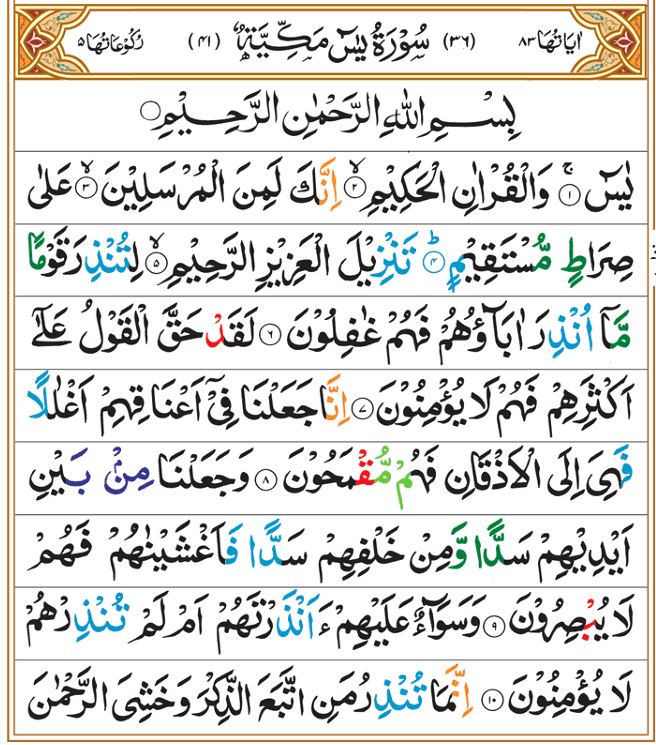 اٰيَاتُهَا ٨٣ (٣٦) سُوْرَةُ يٰسٓ مَكِّيَّةٌ (٤١) رُكُوْعَاتُهَا ٥
بِسْمِ اللّٰهِ الرَّحْمٰنِ الرَّحِيْمِ ۝
يٰسٓ ۝١ۚ وَالْقُرْاٰنِ الْحَكِيْمِ ۝٢ۙ اِنَّكَ لَمِنَ الْمُرْسَلِيْنَ ۝٣ۙ عَلٰى
صِرَاطٍ مُّسْتَقِيْمٍ ۝٤ؕ تَنْزِيْلَ الْعَزِيْزِ الرَّحِيْمِ ۝٥ۙ لِتُنْذِرَ قَوْمًا
مَّاۤ اُنْذِرَ اٰبَآؤُهُمْ فَهُمْ غٰفِلُوْنَ ۝٦ لَقَدْ حَقَّ الْقَوْلُ عَلٰٓى
اَكْثَرِهِمْ فَهُمْ لَا يُؤْمِنُوْنَ ۝٧ اِنَّا جَعَلْنَا فِيْۤ اَعْنَاقِهِمْ اَغْلٰلًا
فَهِيَ اِلَى الْاَذْقَانِ فَهُمْ مُّقْمَحُوْنَ ۝٨ وَجَعَلْنَا مِنْۢ بَيْنِ
اَيْدِيْهِمْ سَدًّا وَّمِنْ خَلْفِهِمْ سَدًّا فَاَغْشَيْنٰهُمْ فَهُمْ
لَا يُبْصِرُوْنَ ۝٩ وَسَوَآءٌ عَلَيْهِمْ ءَاَنْذَرْتَهُمْ اَمْ لَمْ تُنْذِرْهُمْ
لَا يُؤْمِنُوْنَ ۝١٠ اِنَّمَا تُنْذِرُ مَنِ اتَّبَعَ الذِّكْرَ وَخَشِيَ الرَّحْمٰنَ